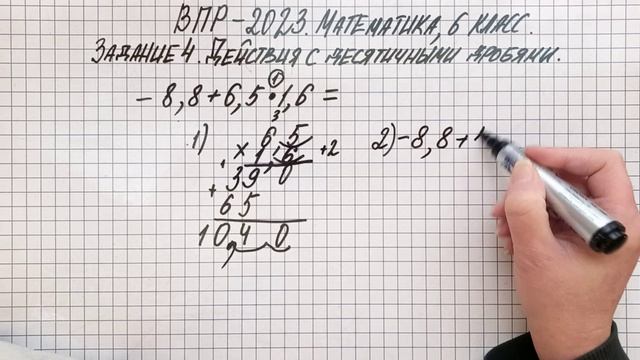 ВПР-2023. МАТЕМАТИКА, 6 КЛАСС.
ЗАДАНИЕ 4. ДЕЙСТВИЯ С ДЕСЯТИЧНЫМИ ДРОБЯМИ.
①
- 8,8 + 6,5 • 1,6 =
3
1) 6,5
× 1,6 +2
39 0
+ 65
10,4 0
2) -8,8 + 1